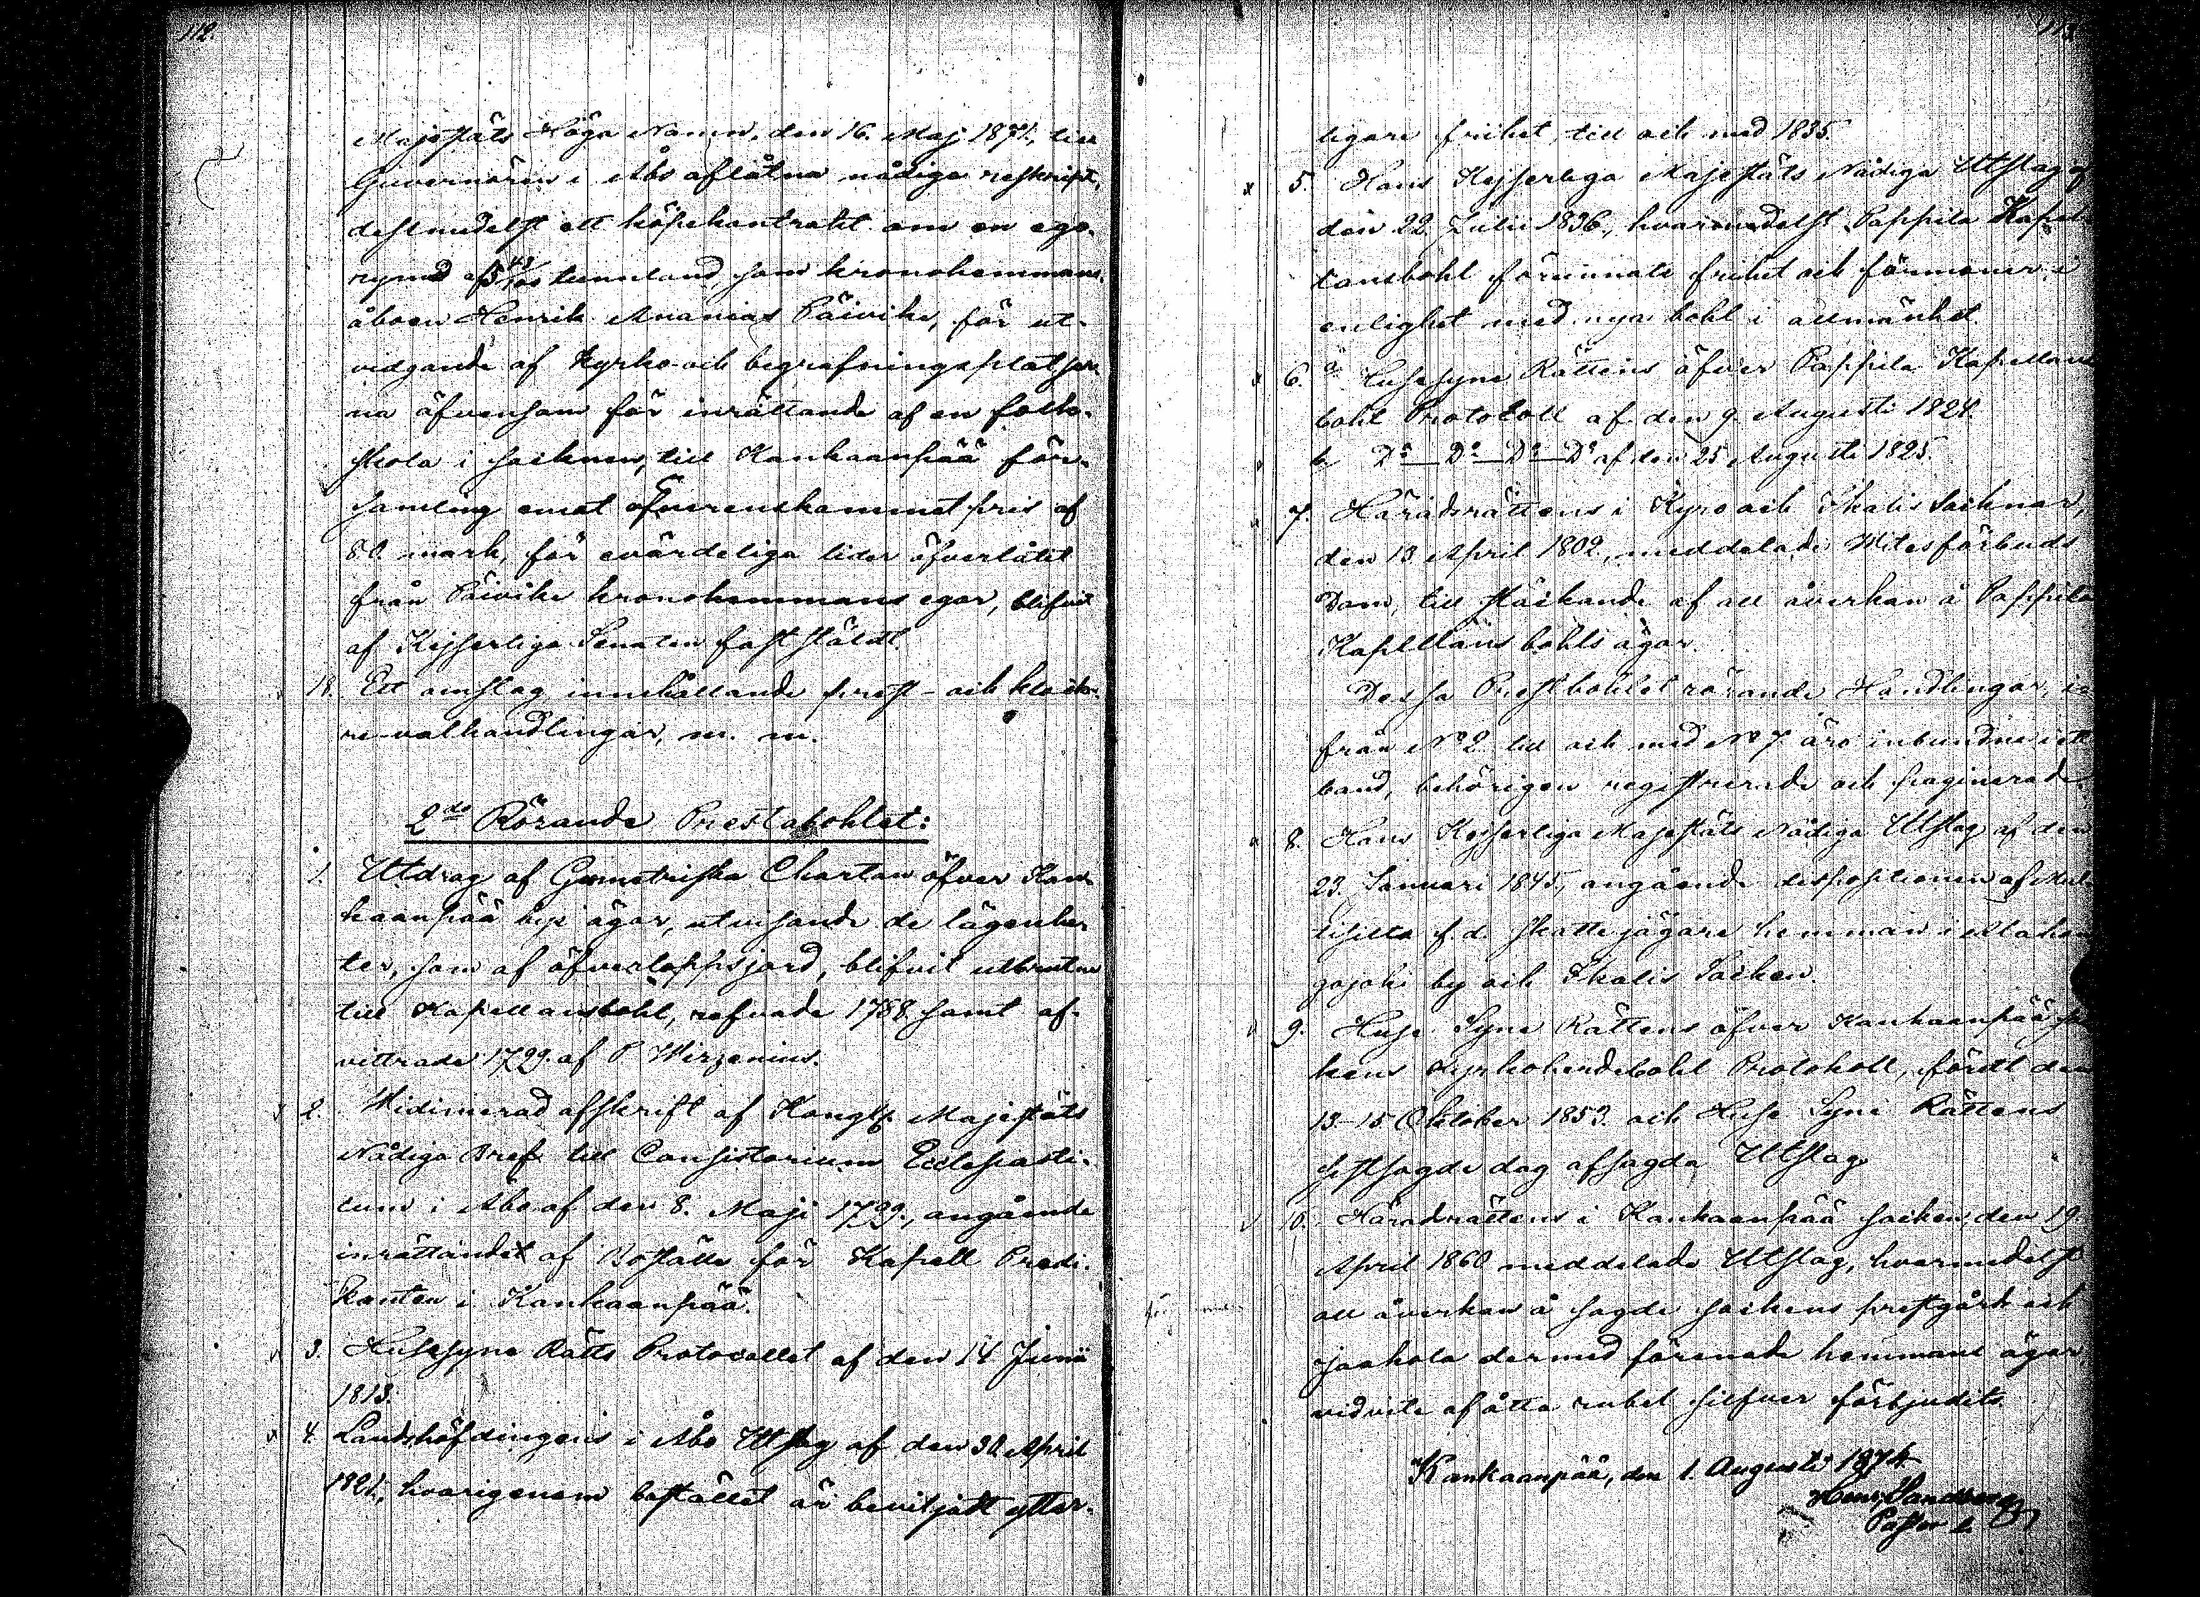 112.
Majestäts Höga Namn, den 16. Maj 1871, till
Guvernören i Åbo aflåtna nådiga reskript,
destmedelst ett köpekontrakt om en ego-
rymd af 5 43/100 tunnland, som kronohemmans-
åboen Henrik Ananias Päivike, för ut-
vidgande af kyrko- och begrafningsplatser-
na äfvensom för inrättande af en folk-
skola i socknen, till Kankaanpää för-
samling emot öfverenskommet pris af
80 mark, för evärdeliga tider öfverlåtit
från Päivike kronohemmans egor, blifvit
af Kejserliga Senaten fastställdt.
18. Ett omslag innehållande prest- och klocka-
re-valhandlingar, m. m.
2do Rörande Prestabohlet:
1. Utdrag af Geometriska Chartan öfver Kan-
kaanpää bys ägor, utvisande de lägenhe-
ter, som af öfverloppsjord, blifvit utbrutne
till Kapellansbohl, refvade 1788 samt af-
vittrade 1799 af P Wirzenius.
2. Widimerad afskrift af Kongl. Majestäts
Nådiga Bref till Consistorium Ecclesiasti-
cum i Åbo af den 8. Maji 1799, angående
inrättandet af Boställe för Kapell Predi-
kanten i Kankaanpää.
3. Husesyns Rätts Protocollet af den 14 Junii
1813.
4. Landshöfdingens i Åbo Utslag af den 30 April
1821, hvarigenom bostället är beviljadt ytter-
113
ligare frihet, till och med 1835.
5. Hans Kejserliga Majestäts Nådiga Utslag af
den 22 Julii 1836, hvarmedelst Pappila Kapel-
lansbohl förunnats frihet och förmoner i
enlighet med nya bohl i allmänhet.
6. a Husesyns Rättens öfver Pappila Kapellans
bohl Protokoll af den 9 Augusti 1824.
b. Do—Do—Do—Do af den 25 Augusti 1825.
7. Häradsrättens i Kyro och Ikalis Socknar,
den 13 April 1802, meddelade Witesförbuds
Dom, till stäckande af all åverkan å Pappila
Kapellans bohls ägor.
Dessa Prestbohlet rörande Handlingar,
från No 2 till och med No 7 äro inbundne i ett
band, behörigen registrerade och paginerade.
8. Hans Kejserliga Majestäts Nådiga Utslag af den
23. Januari 1845, angående dispositionen af
f. d. skattejägare hemman i
by och Ikalis Socken.
9. Huse Syns Rättens öfver Kankaanpää soc-
kens Kyrkoherdebohl Protokoll, fördt den
13-15 Oktober 1853 och Huse Syns Rättens
sistsagde dag afsagda Utslag
10. Häradsrättens i Kankaanpää socken, den 19.
April 1860 meddelade Utslag, hvarmedelst
all åverkan å sagde sockens prestgård och
Jaakola dermed förenade hemmans ägor
vid vite af åtta rubel silfver förbjudits.
Kankaanpää, den 1. Augusti 1874
Sandberg
Pastor